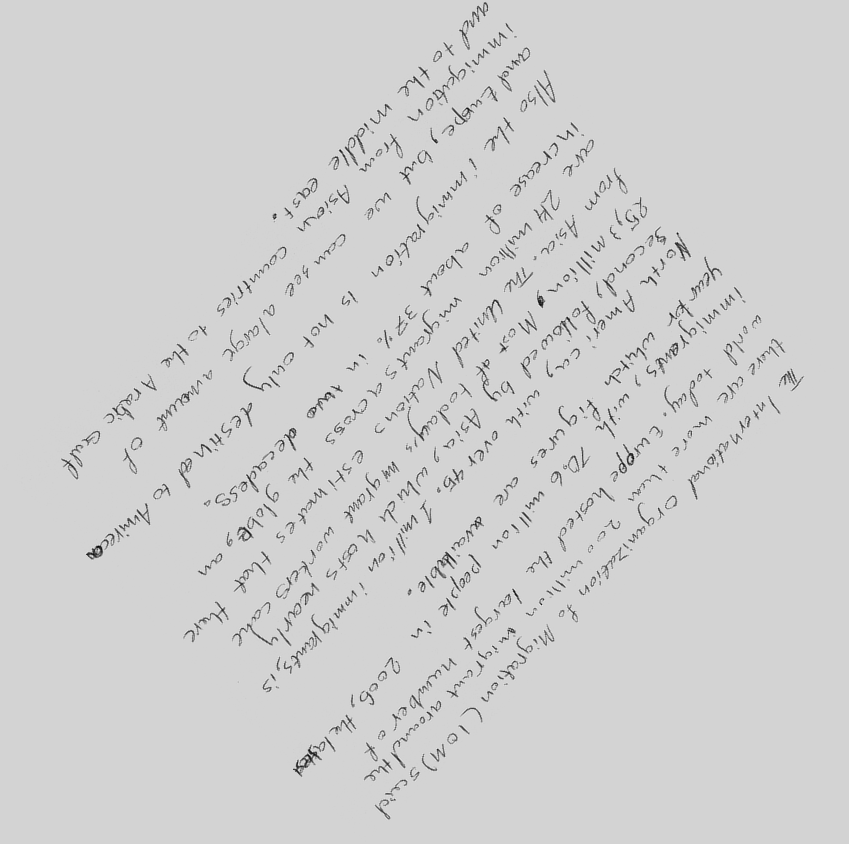 The International Organization fo Migration (IOM) said
there are more than 200 million migrant around the
world today. Europe hosted the largest number of
immigrants, with 70.6 million people in 2006, the latest
year for whitch figures are available.
North America, with over 45.1 million immigrants, is
second, followed by Asia, which hosts nearly
25,3 million. Most of today's migrant workers come
from Asia. The United Nations estimates that there
are 214 million migrants across the globe, an
increase of about 37% in two decadess.
Also the immigration is not only destined to Amireca
and Europe, but we can see alarge amount of
immigration from Asian countries to the Arabic Gulf
and to the middle east.